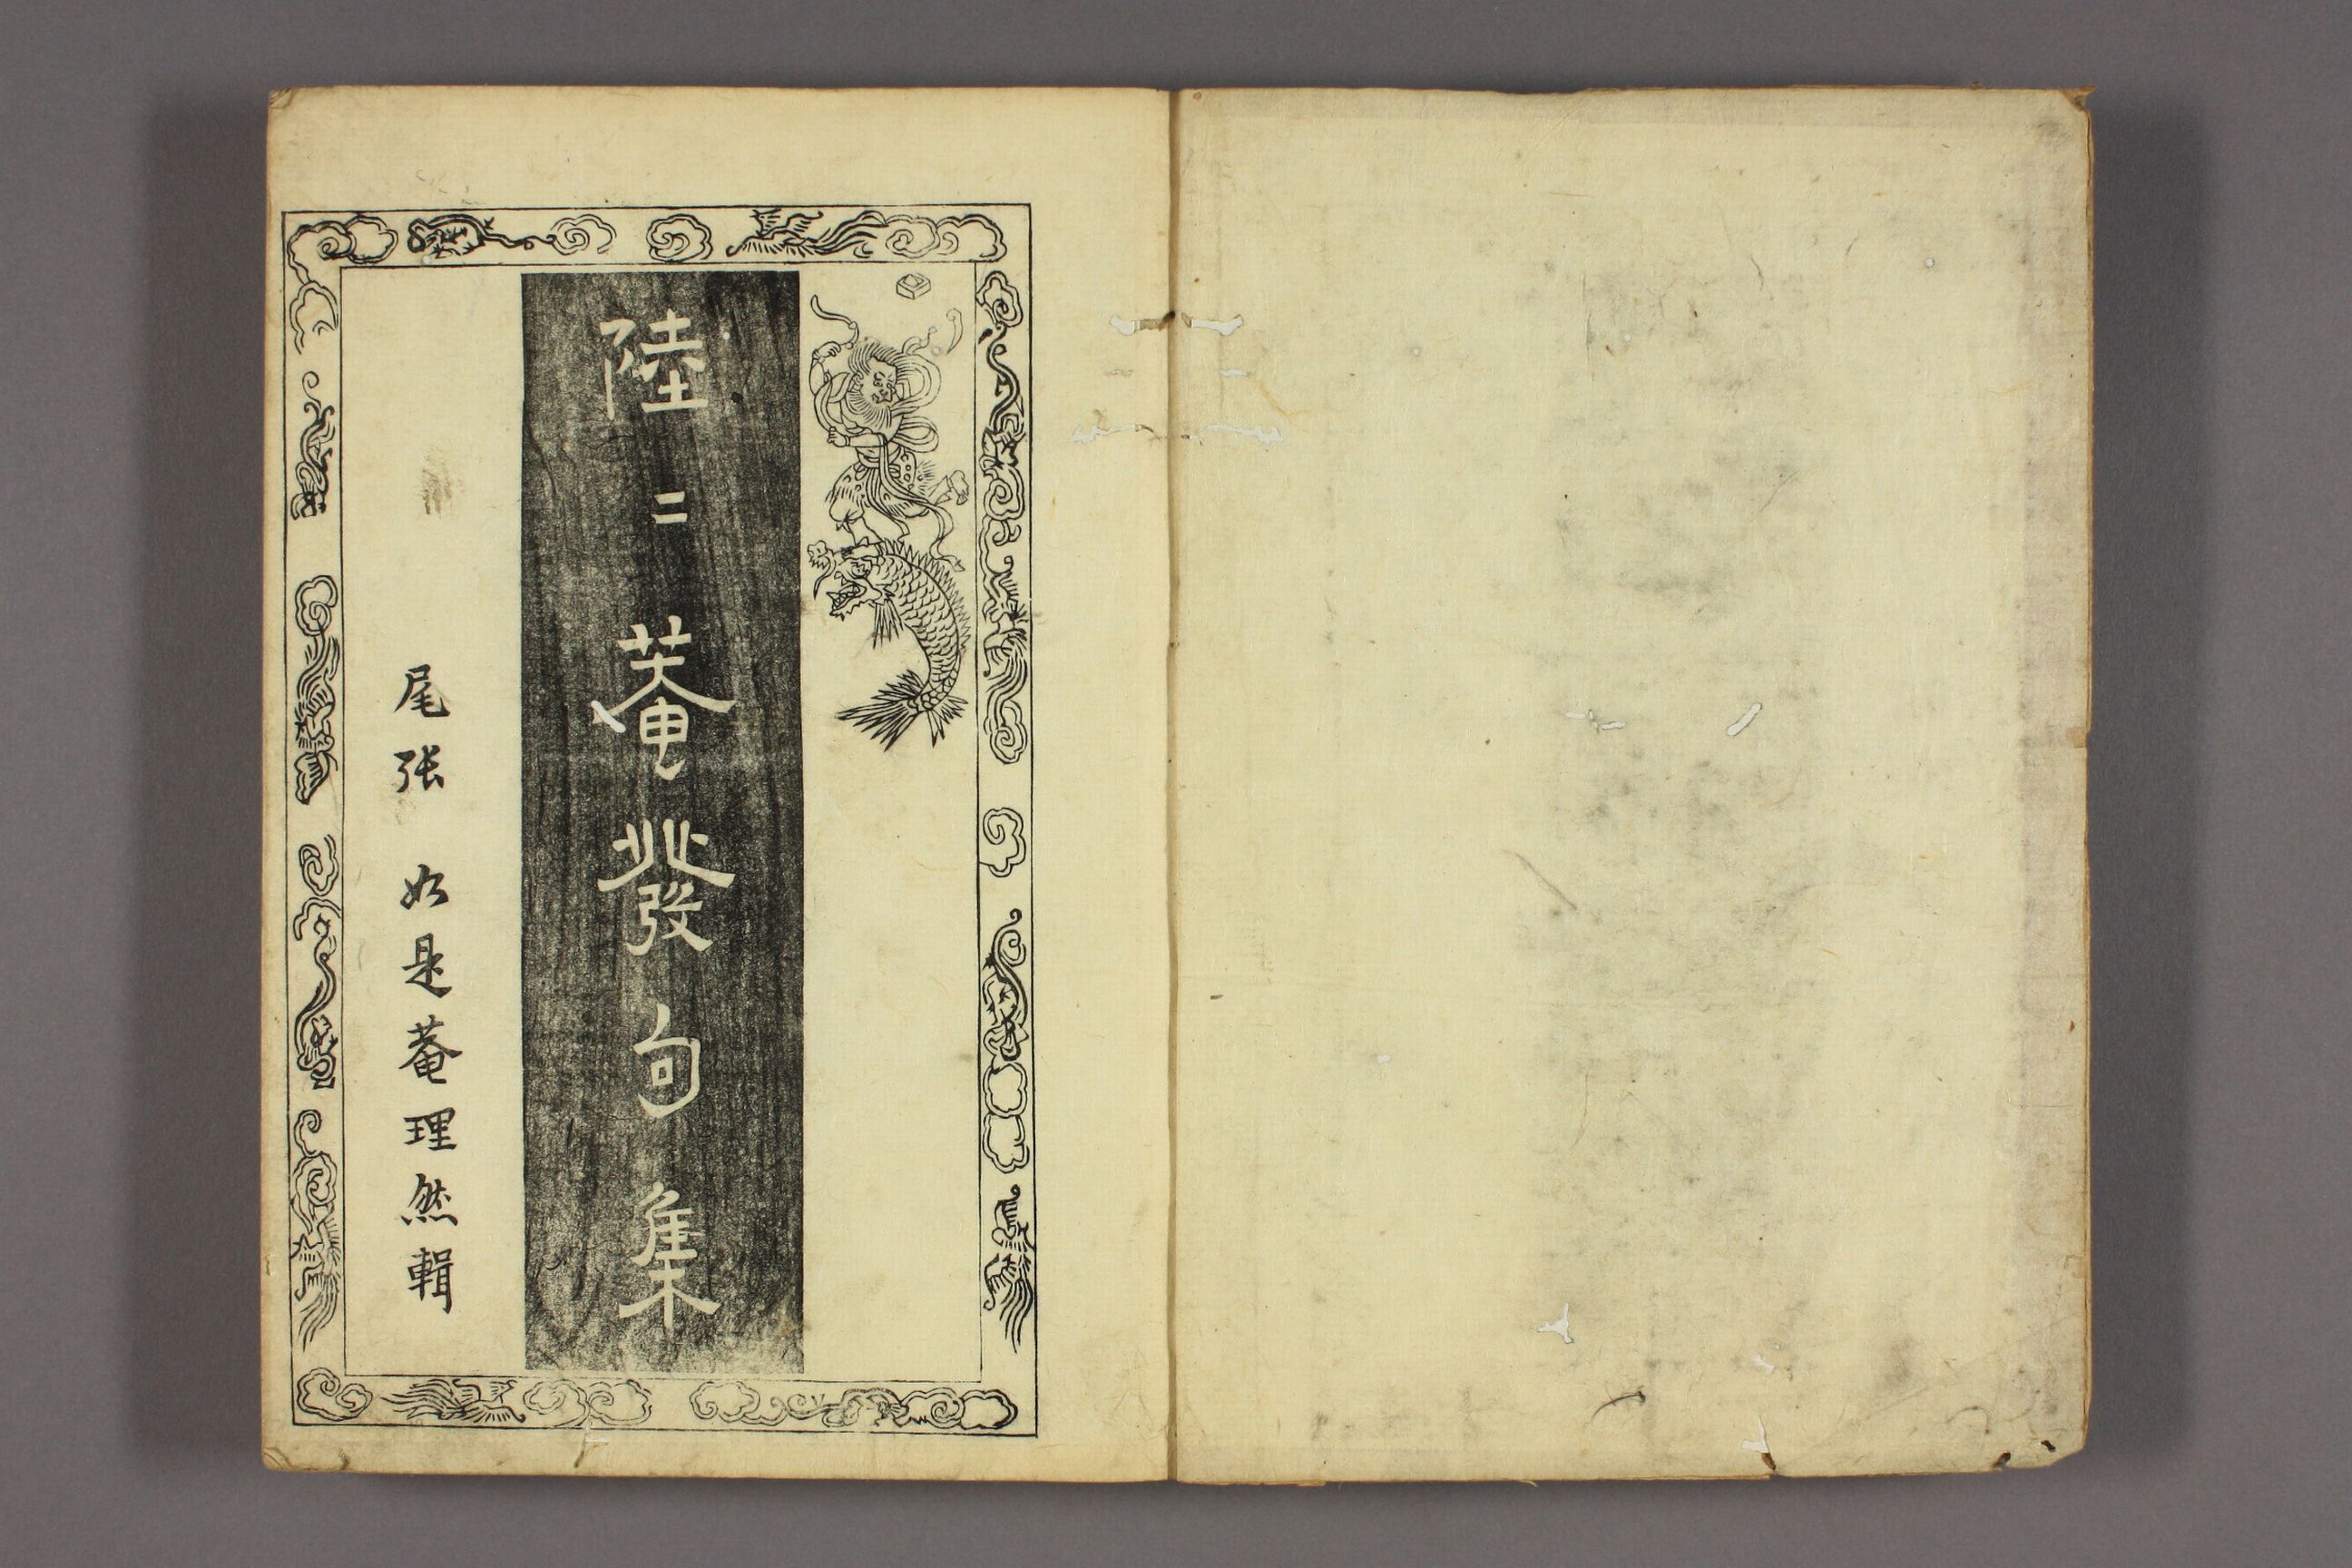 陸二菴發句集
尾張 如是菴理然輯